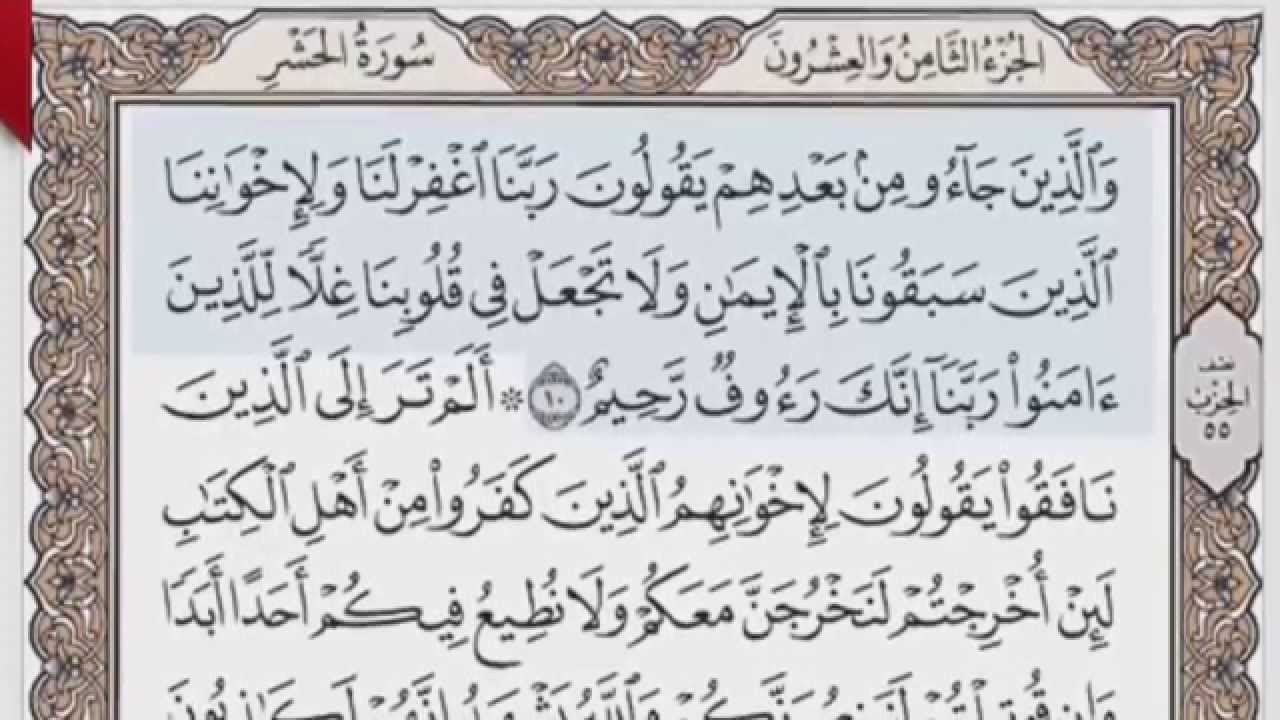 الجُزْءُ الثَّامِنُ وَالعِشْرُونَ
سُورَةُ الحَشْرِ
وَٱلَّذِينَ جَآءُو مِنۢ بَعْدِهِمْ يَقُولُونَ رَبَّنَا ٱغْفِرْ لَنَا وَلِإِخْوَٰنِنَا
ٱلَّذِينَ سَبَقُونَا بِٱلْإِيمَٰنِ وَلَا تَجْعَلْ فِى قُلُوبِنَا غِلًّا لِّلَّذِينَ
ءَامَنُوا۟ رَبَّنَآ إِنَّكَ رَءُوفٌ رَّحِيمٌ ١٠ ۞ أَلَمْ تَرَ إِلَى ٱلَّذِينَ
نَافَقُوا۟ يَقُولُونَ لِإِخْوَٰنِهِمُ ٱلَّذِينَ كَفَرُوا۟ مِنْ أَهْلِ ٱلْكِتَٰبِ
لَئِنْ أُخْرِجْتُمْ لَنَخْرُجَنَّ مَعَكُمْ وَلَا نُطِيعُ فِيكُمْ أَحَدًا أَبَدًا
وَإِن قُوتِلْتُمْ لَنَنصُرَنَّكُمْ وَٱللَّهُ يَشْهَدُ إِنَّهُمْ لَكَٰذِبُونَ
نصف
الحزب
٥٥